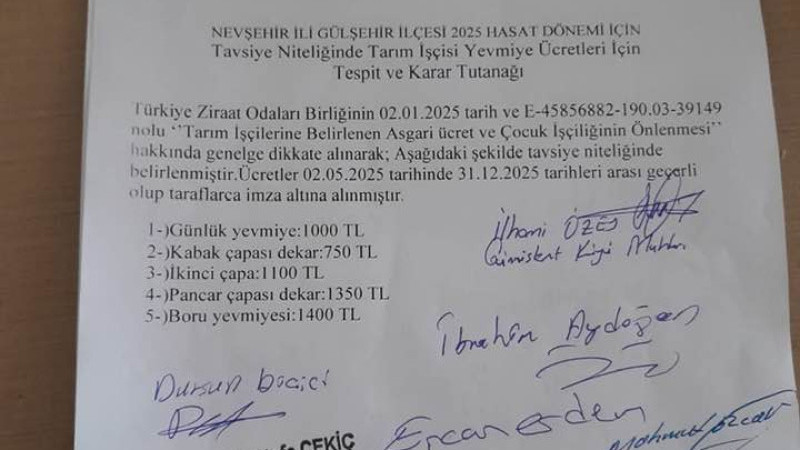 NEVŞEHİR İLİ GÜLŞEHİR İLÇESİ 2025 HASAT DÖNEMİ İÇİN
Tavsiye Niteliğinde Tarım İşçisi Yevmiye Ücretleri İçin
Tespit ve Karar Tutanağı
Türkiye Ziraat Odaları Birliğinin 02.01.2025 tarih ve E-45856882-190.03-39149
nolu ‘’Tarım İşçilerine Belirlenen Asgari ücret ve Çocuk İşçiliğinin Önlenmesi’’
hakkında genelge dikkate alınarak; Aşağıdaki şekilde tavsiye niteliğinde
belirlenmiştir.Ücretler 02.05.2025 tarihinde 31.12.2025 tarihleri arası geçerli
olup taraflarca imza altına alınmıştır.
1-)Günlük yevmiye:1000 TL
2-)Kabak çapası dekar:750 TL
3-)İkinci çapa:1100 TL
4-)Pancar çapası dekar:1350 TL
5-)Boru yevmiyesi:1400 TL
İlhami ÖZEŞ
Köyü Muhtarı
İbrahim Aydoğan
Dursun
Ercan erden
ÇEKİÇ
Mahmut Özcan